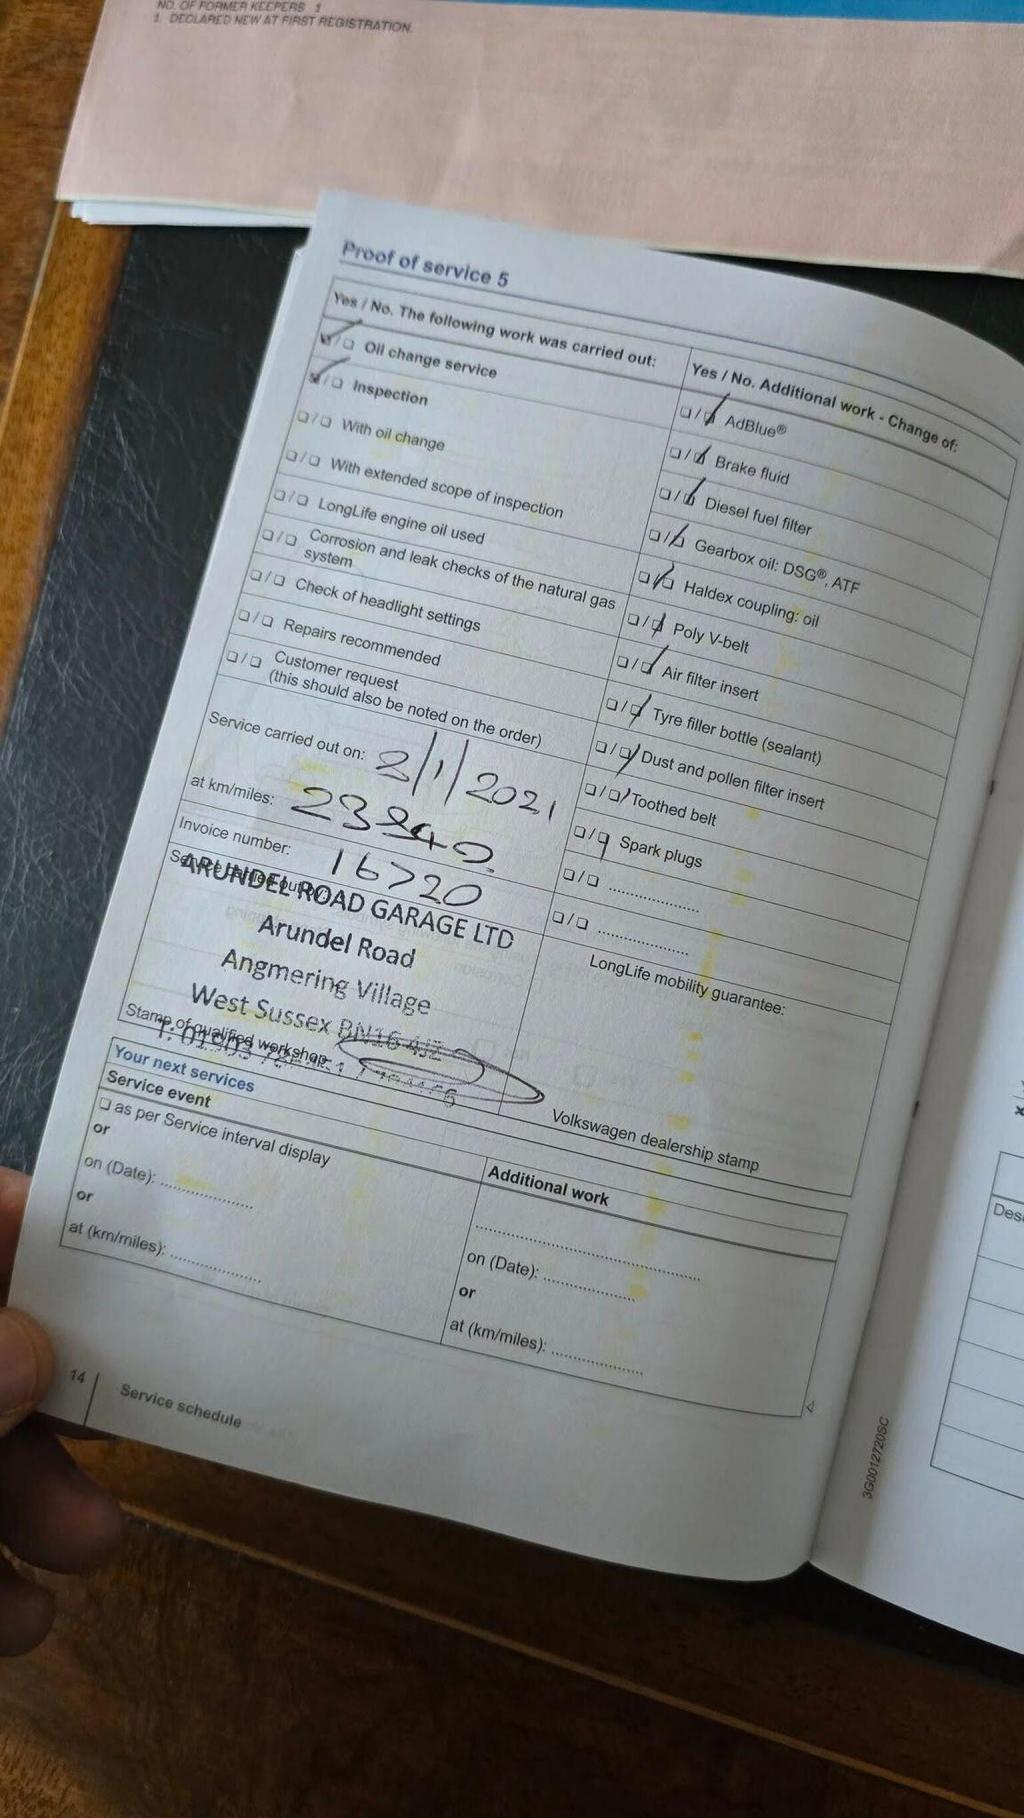 NO. OF FORMER KEEPERS 1
1. DECLARED NEW AT FIRST REGISTRATION.
Proof of service 5
Yes / No. The following work was carried out:
Oil change service
Inspection
With oil change
With extended scope of inspection
LongLife engine oil used
Corrosion and leak checks of the natural gas
system
Check of headlight settings
Repairs recommended
Customer request
(this should also be noted on the order)
Yes / No. Additional work - Change of:
AdBlue®
Brake fluid
Diesel fuel filter
Gearbox oil: DSG®, ATF
Haldex coupling: oil
Poly V-belt
Air filter insert
Tyre filler bottle (sealant)
Dust and pollen filter insert
Toothed belt
Spark plugs
Service carried out on: 2/1/2021
at km/miles:
Invoice number: 16720
ARUNDEL ROAD GARAGE LTD
Arundel Road
Angmering Village
West Sussex BN16
Stamp of qualified workshop
LongLife mobility guarantee:
Volkswagen dealership stamp
Your next services
Service event
as per Service interval display
or
on (Date): ..................
or
at (km/miles): ..................
Additional work
on (Date): ..................
or
at (km/miles): ..................
14
Service schedule
3G0012720SC